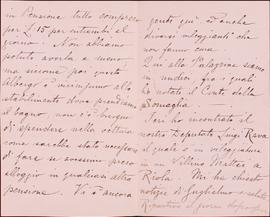 in Pensione tutto compreso
per £ 15 per entrambi al
giorno. Non abbiamo
potuto averla a meno,
ma siccome poi questo
Albergo è vicinissimo allo
stabilimento dove prendiamo
il bagno, non c'è bisogno
di spendere nella vettura
come sarebbe stato necessario
di fare se avessimo preso
alloggio in qualcuna altra
pensione. Vi è ancora
gente qui e anche
diversi villeggianti che
non fanno cura.
Qui alla Palazzina siamo
in undici fra i quali
ho notato il Conte della
Somaglia
Ieri ho incontrato il
nostro Deputato Luigi Rava
il quale è in villeggiatura
in un Villino Mattei a
Riola. Mi ha chiesto
notizie di Guglielmo e
il giorno dopo